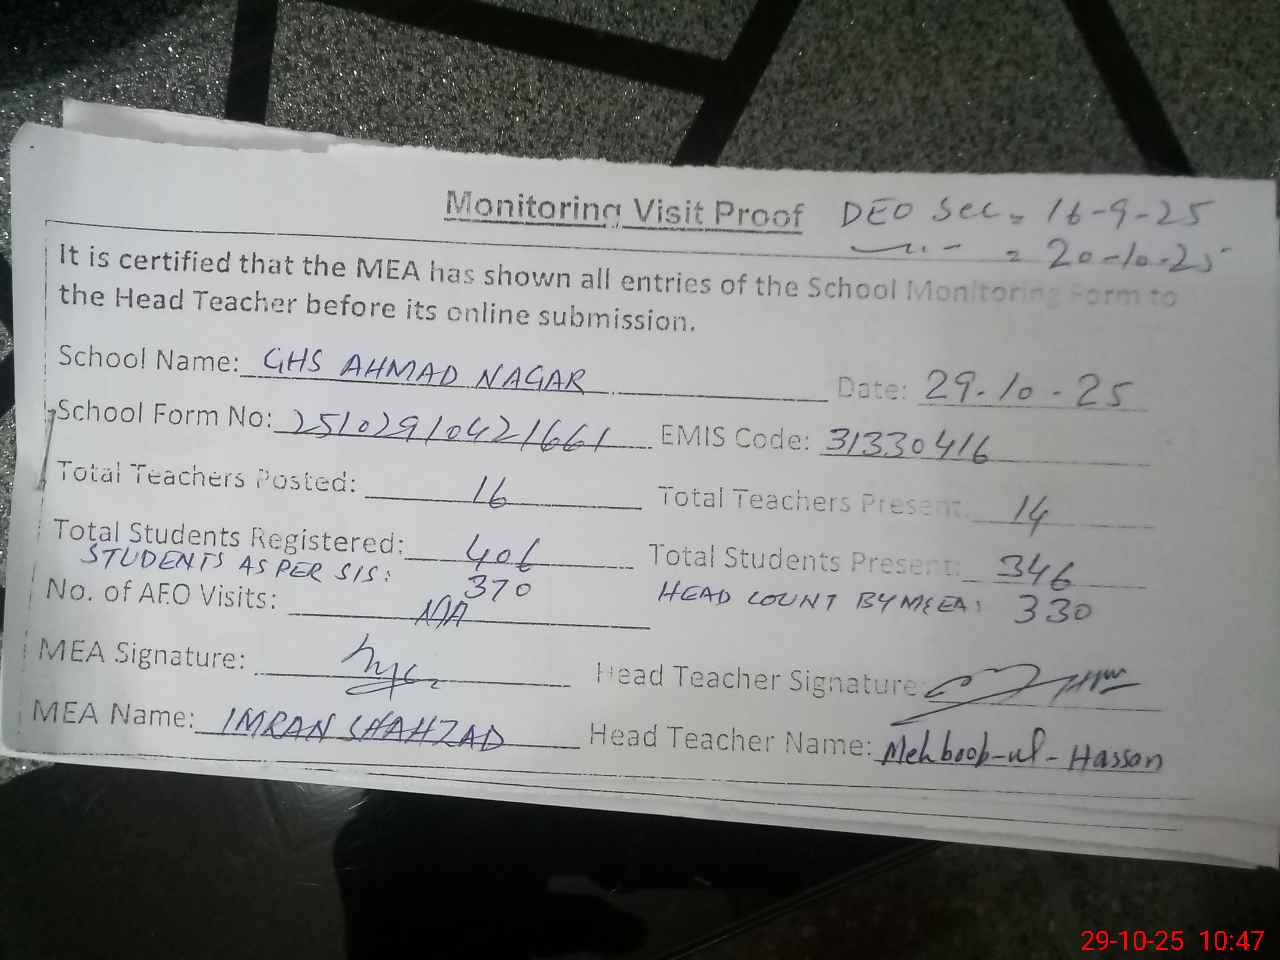 Monitoring Visit Proof DEO Sec = 16-9-25
= 20-10-25
It is certified that the MEA has shown all entries of the School Monitoring Form to
the Head Teacher before its online submission.
School Name: GHS AHMAD NAGAR Date: 29-10-25
School Form No: 25102910421661 EMIS Code: 31330416
Total Teachers Posted: 16 Total Teachers Present: 14
Total Students Registered: 406 Total Students Present: 346
STUDENTS AS PER SIS: 370 HEAD COUNT BY MEA: 330
No. of AEO Visits: NA
MEA Signature: Head Teacher Signature:
MEA Name: IMRAN SHAHZAD Head Teacher Name: Mehboob-ul-Hassan
29-10-25 10:47